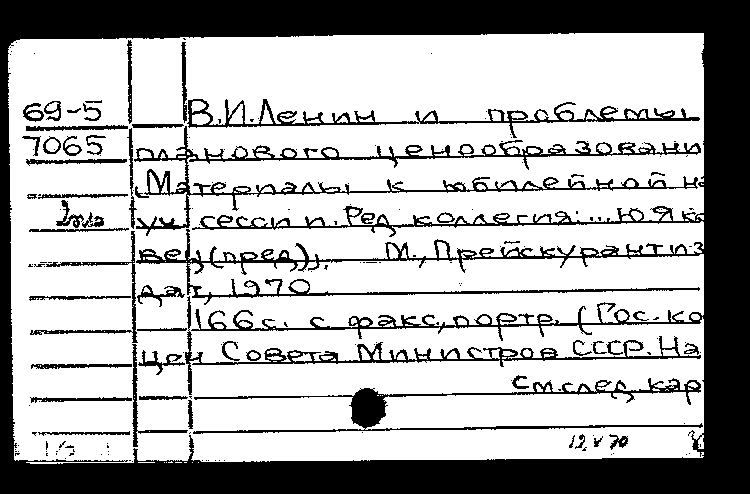 69-5 В.И.Ленин и проблемы
7065 планового ценообразовани
Материалы к юбилейной на
уч. сессии. Ред.коллегия:...Ю.Яко
вец(пред.), М.,Прейскурантиз
дат, 1970
166 с. с факс.,портр. (Гос.ко
цен Совета Министров СССР. На
см.след.кар
12.V 70